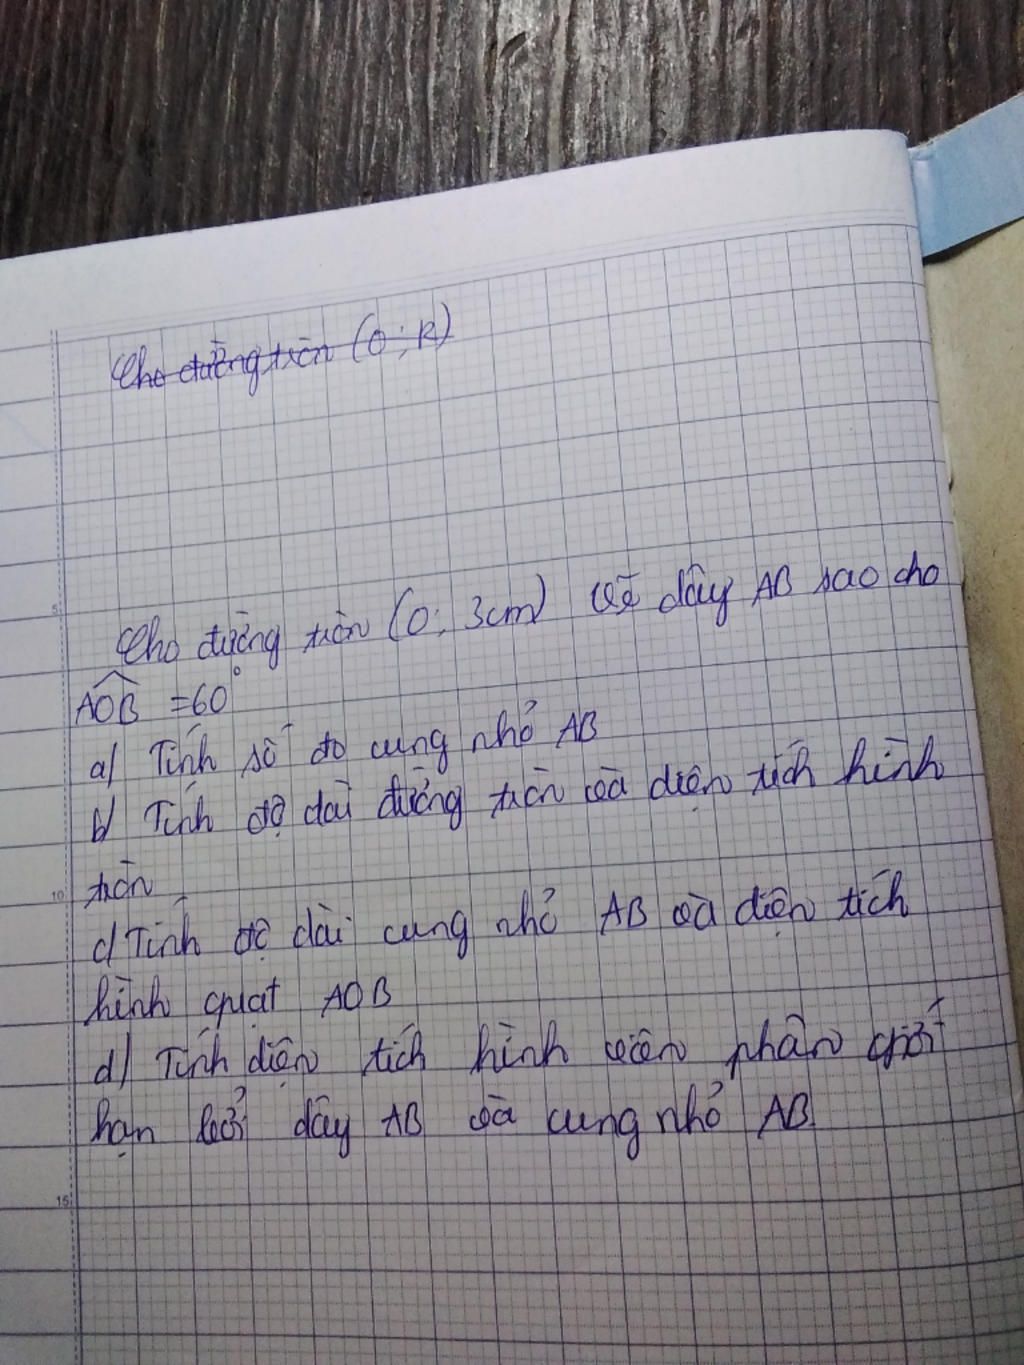 Cho đường tròn (O; R)
5
Cho đường tròn (O; 3cm) Vẽ dây AB sao cho
AOB = 60°
a) Tính số đo cung nhỏ AB
b) Tính độ dài đường tròn và diện tích hình
10
tròn
c) Tính độ dài cung nhỏ AB và diện tích
hình quạt AOB
d) Tính diện tích hình viên phân giới
hạn bởi dây AB và cung nhỏ AB
15